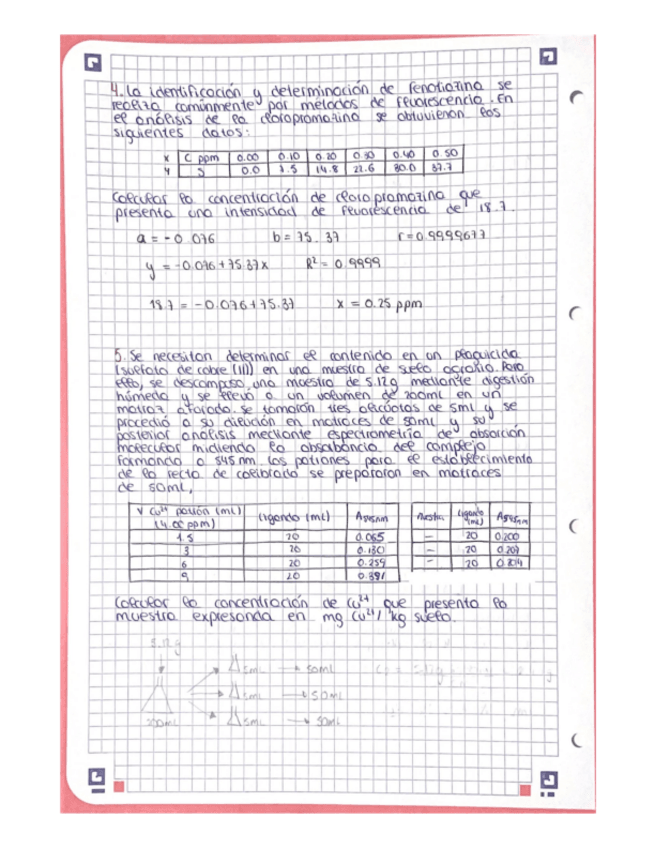 4. La identificación y determinación de fenotiazina se
realiza comúnmente por métodos de fluorescencia. En
el análisis de la cloropromazina se obtuvieron los
siguientes datos:
x C ppm 0.00 0.10 0.20 0.30 0.40 0.50
y S 0.0 7.5 14.8 22.6 30.0 37.7
Calcular la concentración de cloropromazina que
presenta una intensidad de fluorescencia de 18.7.
a = -0.076 b = 75.37 r = 0.9999677
y = -0.076 + 75.37x R² = 0.9999
18.7 = -0.076 + 75.37 x = 0.25 ppm
5. Se necesitan determinar el contenido en un plaguicida
(sulfato de cobre (II)) en una muestra de suelo agrario. Para
ello, se descompuso una muestra de 5.12g mediante digestión
húmeda y se llevó a un volumen de 200mL en un
matraz aforado. Se tomaron tres alícuotas de 5mL y se
procedió a su dilución en matraces de 50mL y su
posterior análisis mediante espectrometría de absorción
molecular midiendo la absorbancia del complejo
formando a 545 nm. Los patrones para el establecimiento
de la recta de calibrado se prepararon en matraces
de 50mL,
V Cu²⁺ patrón (mL) ligando (mL) A545nm Muestra ligando (mL) A545nm
(4.00 ppm)
1.5 20 0.065 — 20 0.200
3 20 0.130 — 20 0.207
6 20 0.259 — 20 0.204
9 20 0.391
Calcular la concentración de Cu²⁺ que presenta la
muestra expresanda en mg Cu²⁺/kg suelo.
5.12 g
5mL → 50mL
5mL → 50mL
200mL 5mL → 50mL